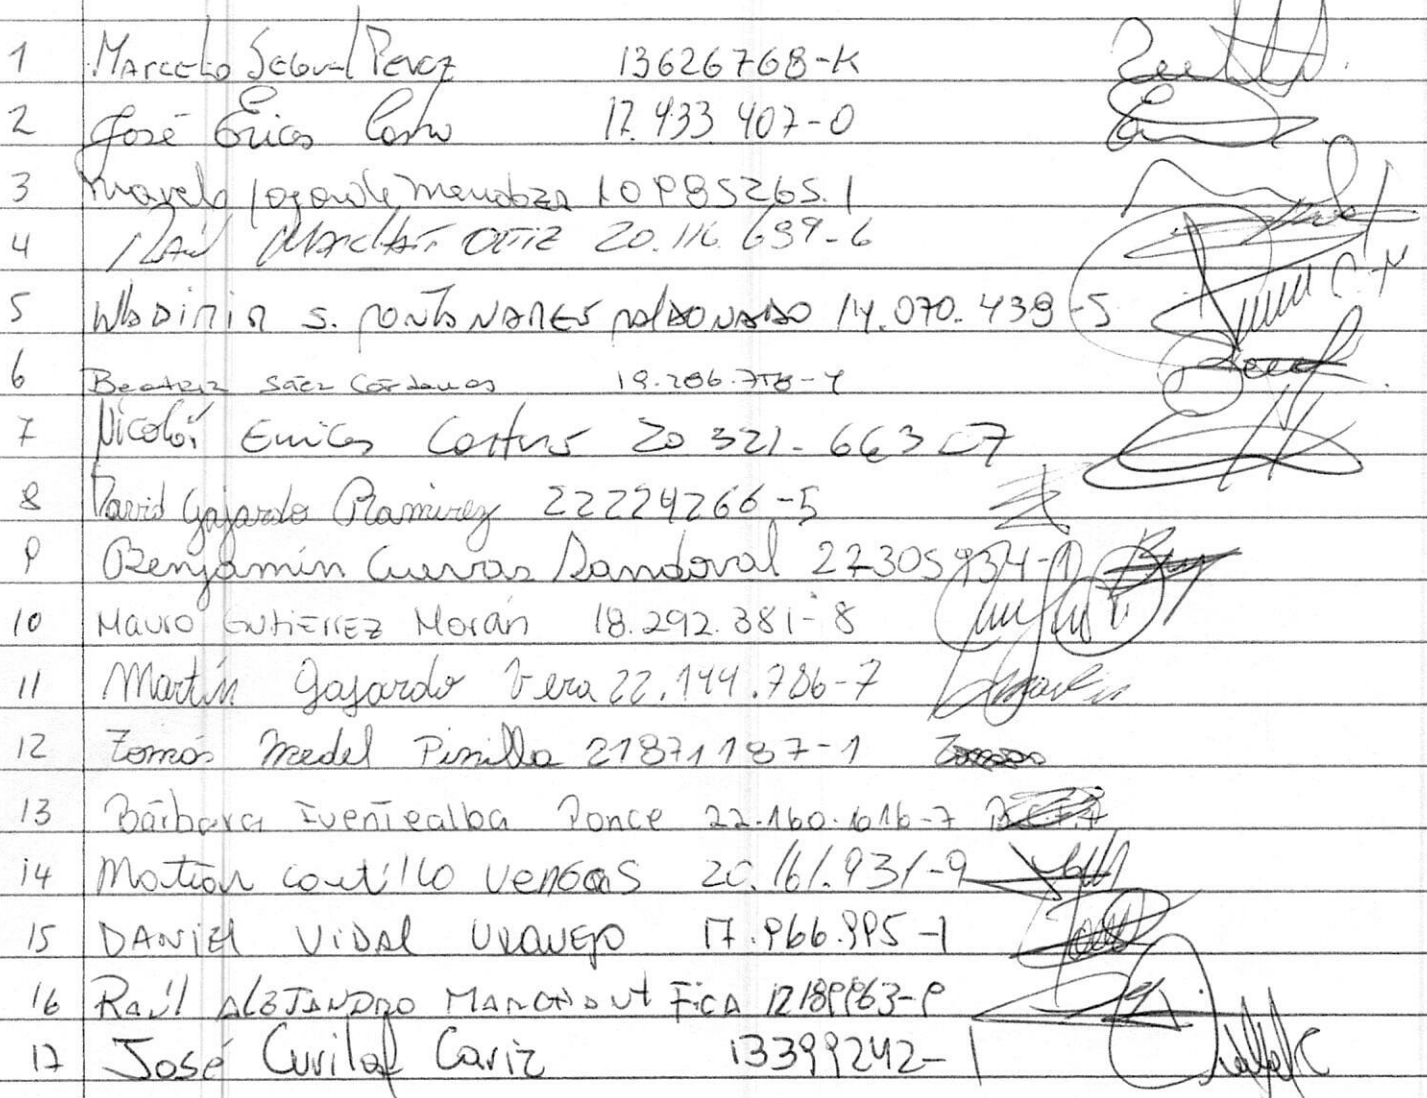 1 Marcelo Seguel Perez 13626768-K
2 José Erices Castro 17.433 407-0
3 Mendoza 10985265.1
4 Raúl Marchant Ortiz 20.116.699-6
5 Wladimir S. Montanares Maldonado 14.070.439-5
6 Beatriz Sáez Cárdenas
7 Nicolás Erices 20 321.663-7
8 David Gajardo Ramirez 22224266-5
9 Benjamín Cuevas Sandoval 22305934-1
10 Mauro Gutierrez Morán 18.292.381-8
11 Martín Gajardo Vera 22.144.786-7
12 Tomás Medel Pinilla 21871187-1
13 Bárbara Fuentealba Ponce 22.160.616-7
14 Matias Venegas 20.161.931-9
15 Daniel Vidal 17.966.995-1
16 Raúl Alejandro Marchant Fica 12189963-9
17 José Curilaf Cariz 13399242-1